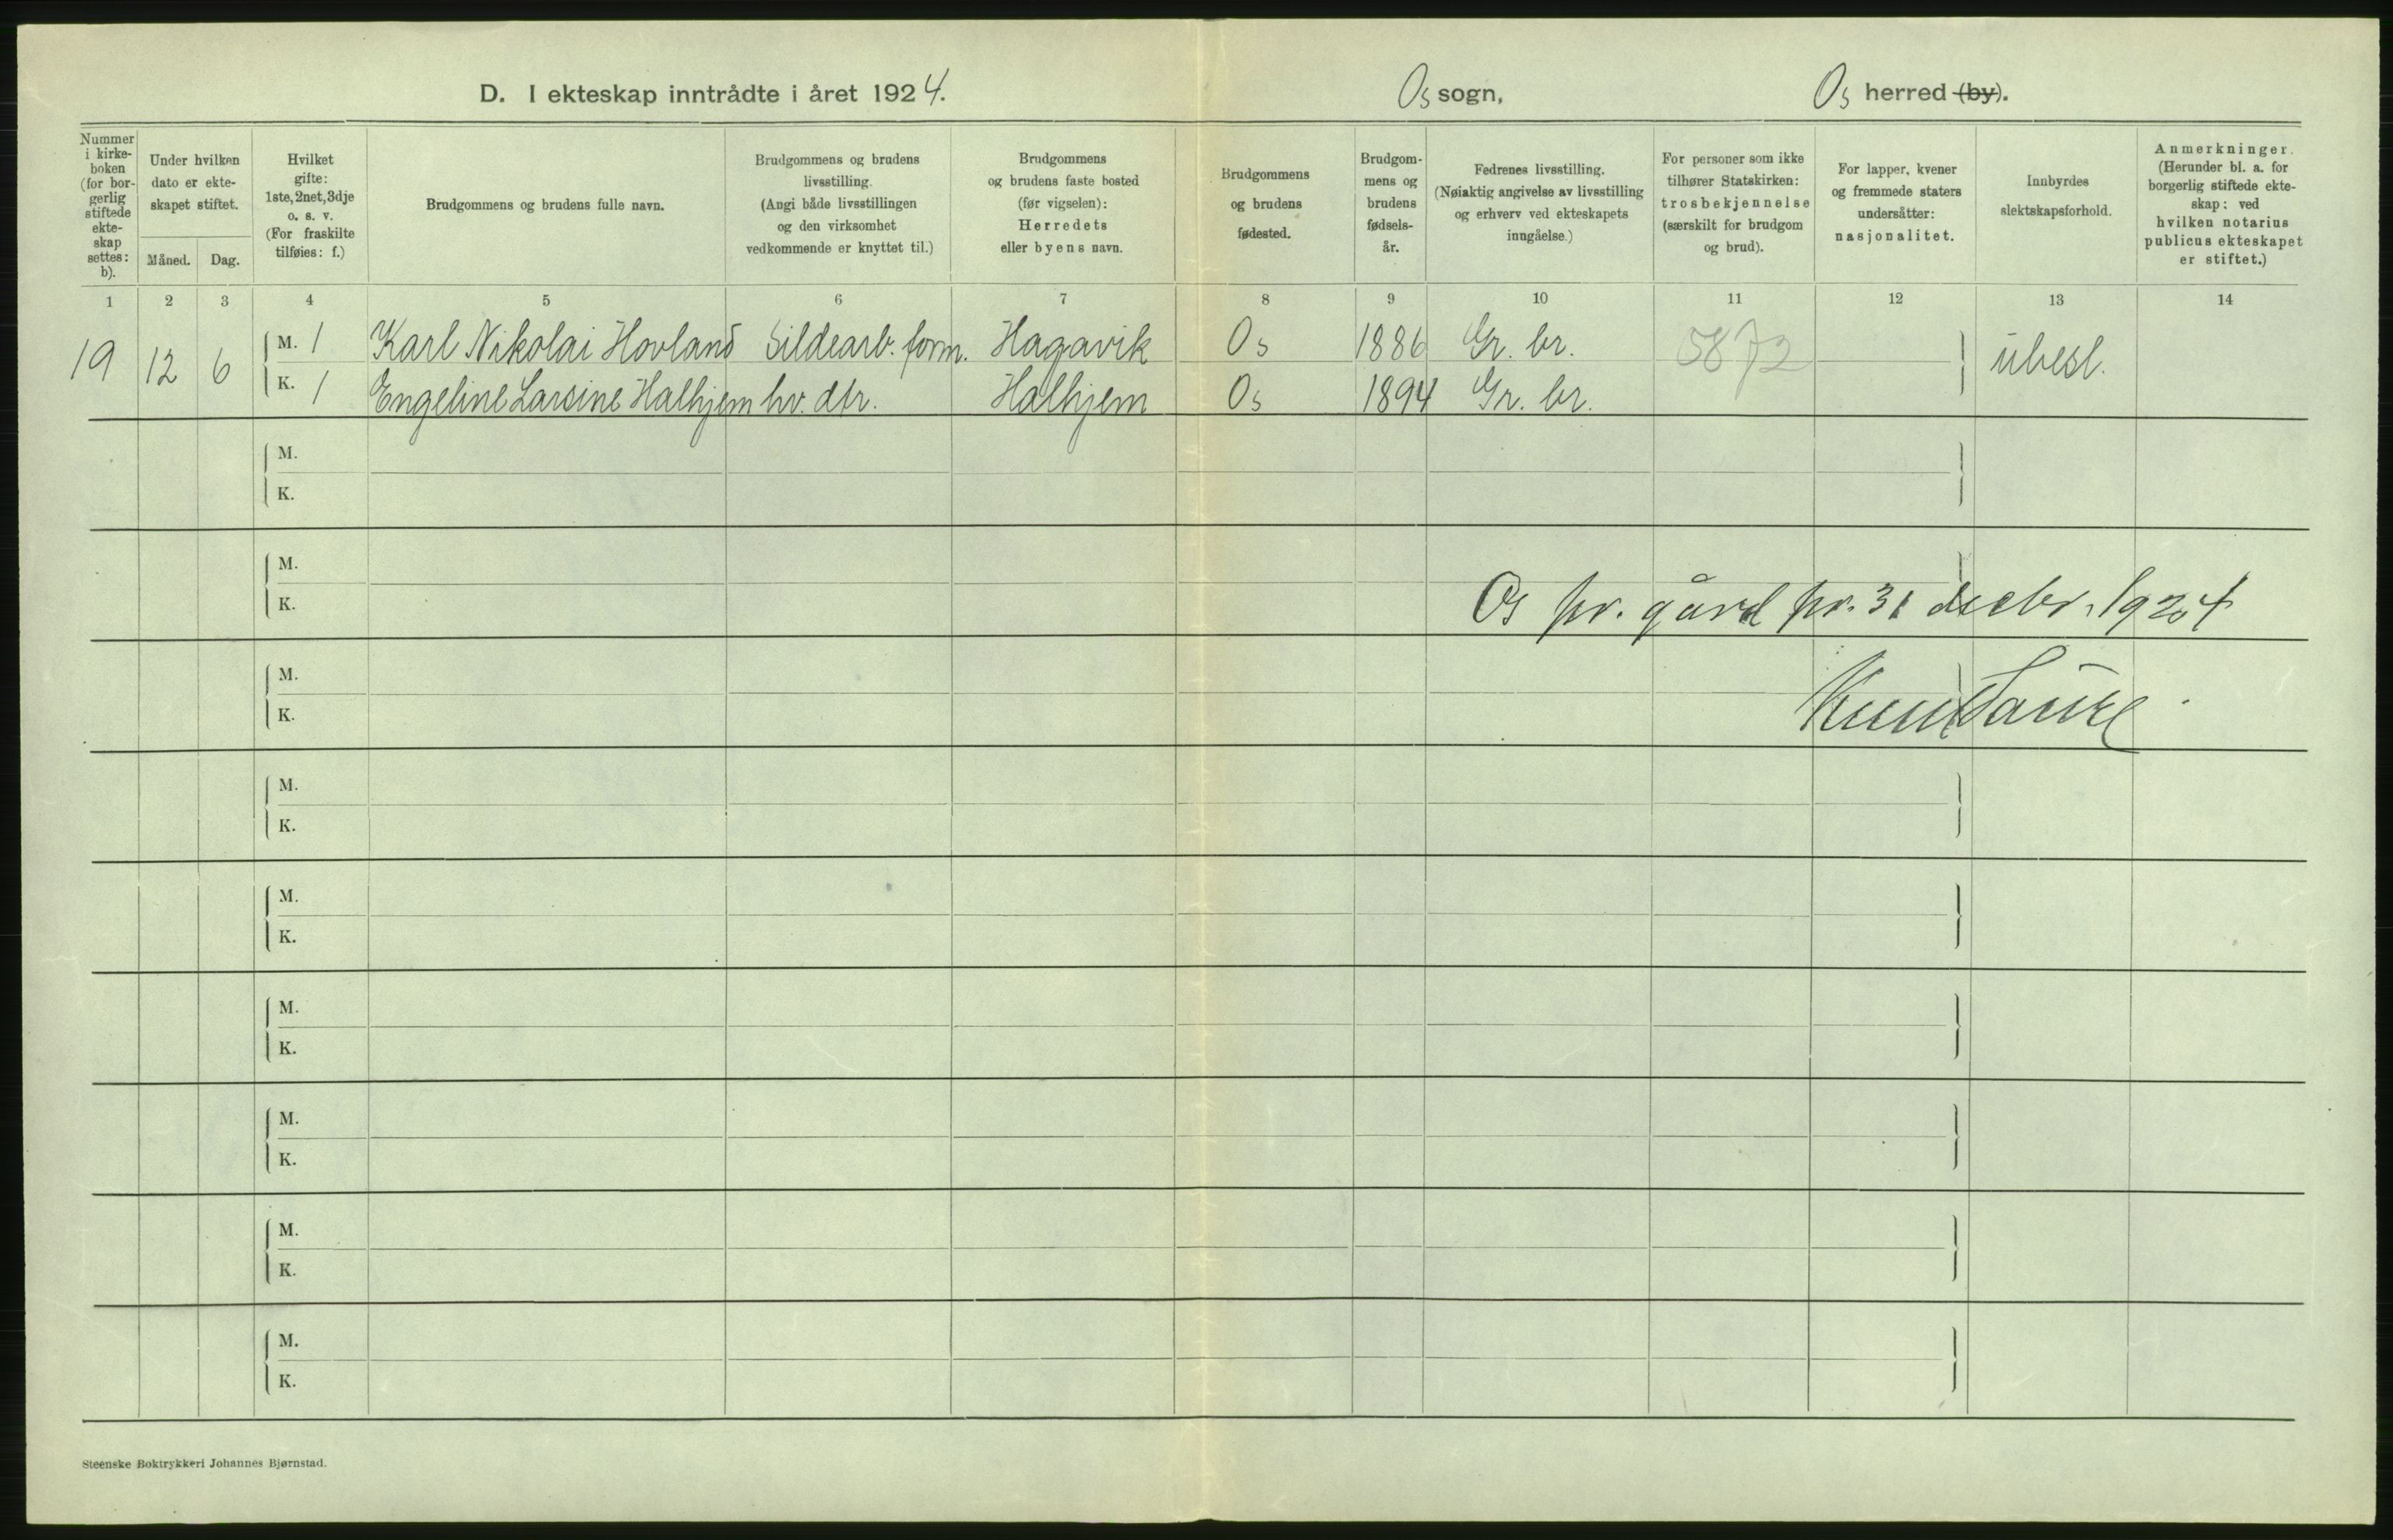 D. I ekteskap inntrådte i året 1924.
Os sogn,
Os herred (by).
Nummer
i kirke-
boken
(for bor-
gerlig
stiftede
ekte-
skap
settes:
b).
Under hvilken
dato er ekte-
skapet stiftet.
Måned.
Dag.
Hvilket
gifte:
1ste, 2net, 3dje
o. s. v.
(For fraskilte
tilføies: f.)
Brudgommens og brudens fulle navn.
Brudgommens og brudens
livsstilling.
(Angi både livsstillingen
og den virksomhet
vedkommende er knyttet til.)
Brudgommens
og brudens faste bosted
(før vigselen):
Herredets
eller byens navn.
Brudgommens
og brudens
fødested.
Brudgom-
mens og
brudens
fødsels-
år.
Fedrenes livsstilling.
(Nøiaktig angivelse av livsstilling
og erhverv ved ekteskapets
inngåelse.)
For personer som ikke
tilhører Statskirken:
trosbekjennelse
(særskilt for brudgom
og brud).
For lapper, kvener
og fremmede staters
undersåtter:
nasjonalitet.
Innbyrdes
slektskapsforhold.
Anmerkninger.
(Herunder bl. a. for
borgerlig stiftede ekte-
skap: ved
hvilken notarius
publicus ekteskapet
er stiftet.)
1 2 3 4 5 6 7 8 9 10 11 12 13 14
19 12 6
M. 1 Karl Nikolai Hovland Sildearb. form. Hagavik Os 1886 Gr. br. 5872 ubesl.
K. 1 Engeline Larsine Halhjem hv. dtr. Halhjem Os 1894 Gr. br.
M.
K.
M.
K.
Os pr. gård pr. 31 decbr. 1924
M.
K.
Knut Sauke
M.
K.
M.
K.
M.
K.
M.
K.
M.
K.
M.
K.
Steenske Boktrykkeri Johannes Bjørnstad.